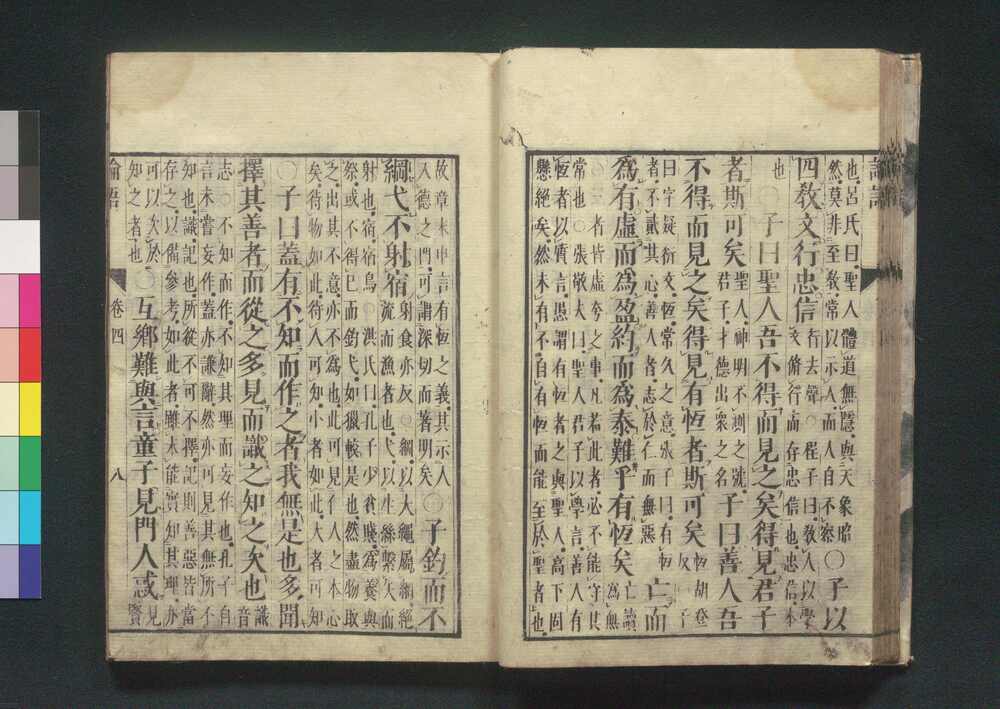 論語
也呂氏曰聖人體道無隱與天象昭
然莫非至教常以示人而人自不察
○子以
四教文行忠信
行去聲○程子曰教人以學
文脩行而存忠信也忠信本
也
○子曰聖人吾不得而見之矣得見君子
者斯可矣
聖人神明不測之號
君子才德出衆之名
子曰善人吾
不得而見之矣得見有恆者斯可矣
恆胡登
反○子
曰字疑衍文恆常久之意張子曰有恆
者不貳其心善人者志於仁而無惡
亡而
爲有虛而爲盈約而爲泰難乎有恆矣
亡讀
爲無
○三者皆虛夸之事凡若此者必不能守其
常也○張敬夫曰聖人君子以學言善人有
恆者以質言愚謂有恆者之與聖人高下固
懸絕矣然未有不自有恆而能至於聖者也
故章末申言有恆之義其示人
入德之門可謂深切而著明矣
○子釣而不
綱弋不射宿
射食亦反○綱以大繩屬網絕
流而漁者也弋以生絲繫矢而
射也宿宿鳥○洪氏曰孔子少貧賤爲養與
祭或不得已而釣弋如獵較是也然盡物取
之出其不意亦不爲也此可見仁人之本心
矣待物如此待人可知小者如此大者可知
○子曰蓋有不知而作之者我無是也多聞
擇其善者而從之多見而識之知之次也
識
音
志○不知而作不知其理而妄作也孔子自
言未嘗妄作蓋亦謙辭然亦可見其無所不
知也識記也所從不可不擇記則善惡皆當
存之以備參考如此者雖未能實知其理亦
可以次於
知之者也
○互鄉難與言童子見門人惑
見
賢
論語
卷四
八